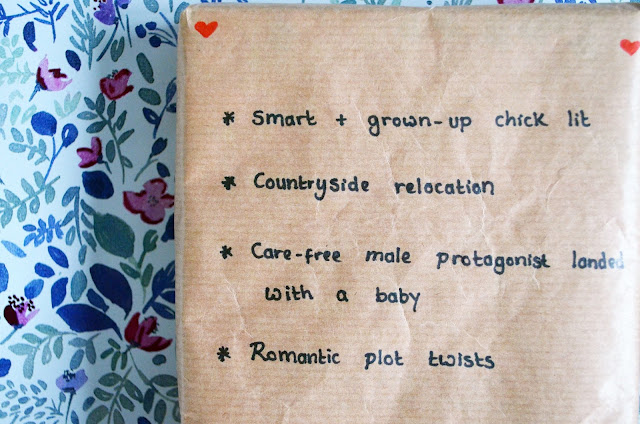 * Smart + grown-up chick lit
* Countryside relocation
* Care-free male protagonist landed
with a baby
* Romantic plot twists